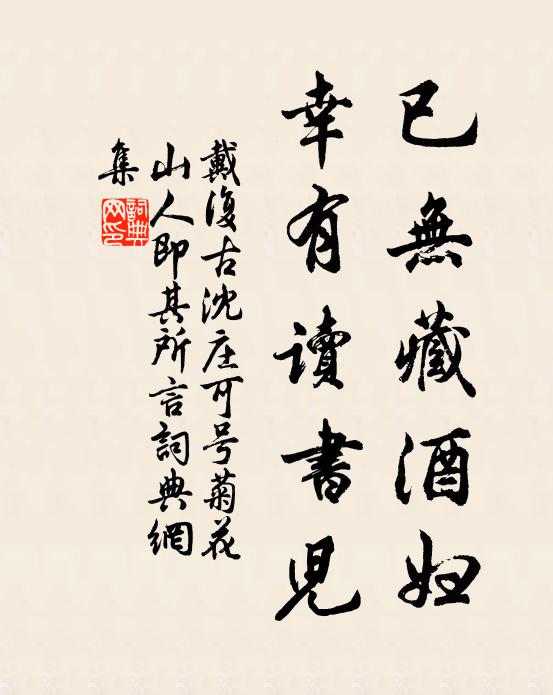 已無藏酒妇
幸有讀書児
戴復古沈庄可号菊花
山人即其所言詞典網
集
詞典
网印